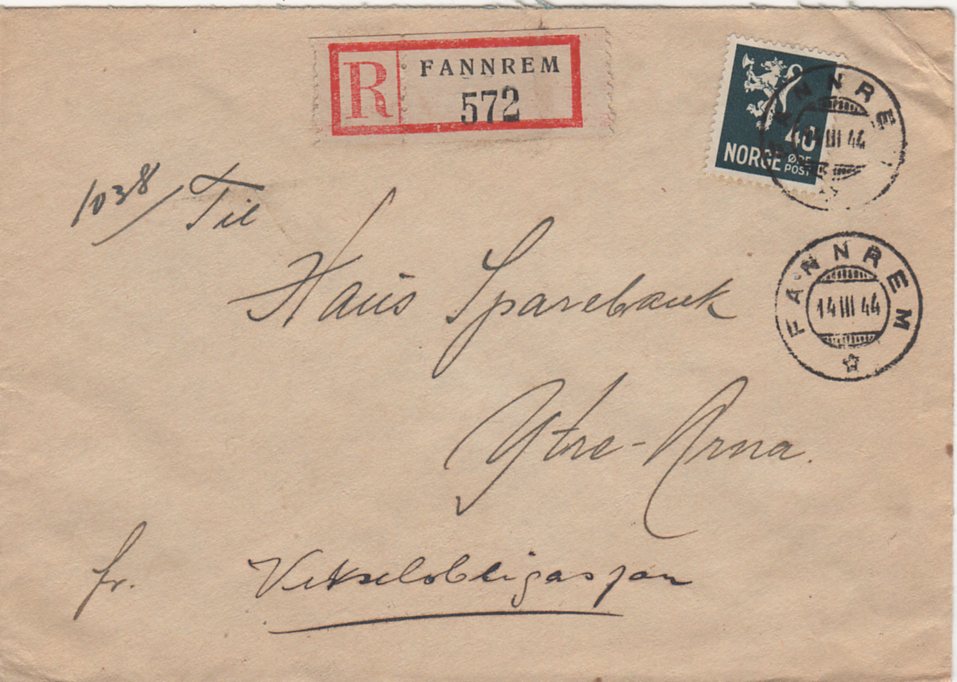 R FANNREM
572
NORGE 40 ØRE POST
FANNREM
14 III 44
FANNREM
14 III 44
1038/ Til
Haus Sparebank
Ytre-Arna.
fr. Vekselobligasjon